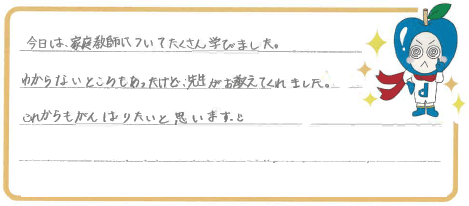 今日は、家庭教師についてたくさん学びました。
わからないところもあったけど、先生がお教えてくれました。
これからもがんばりたいと思います。と
d